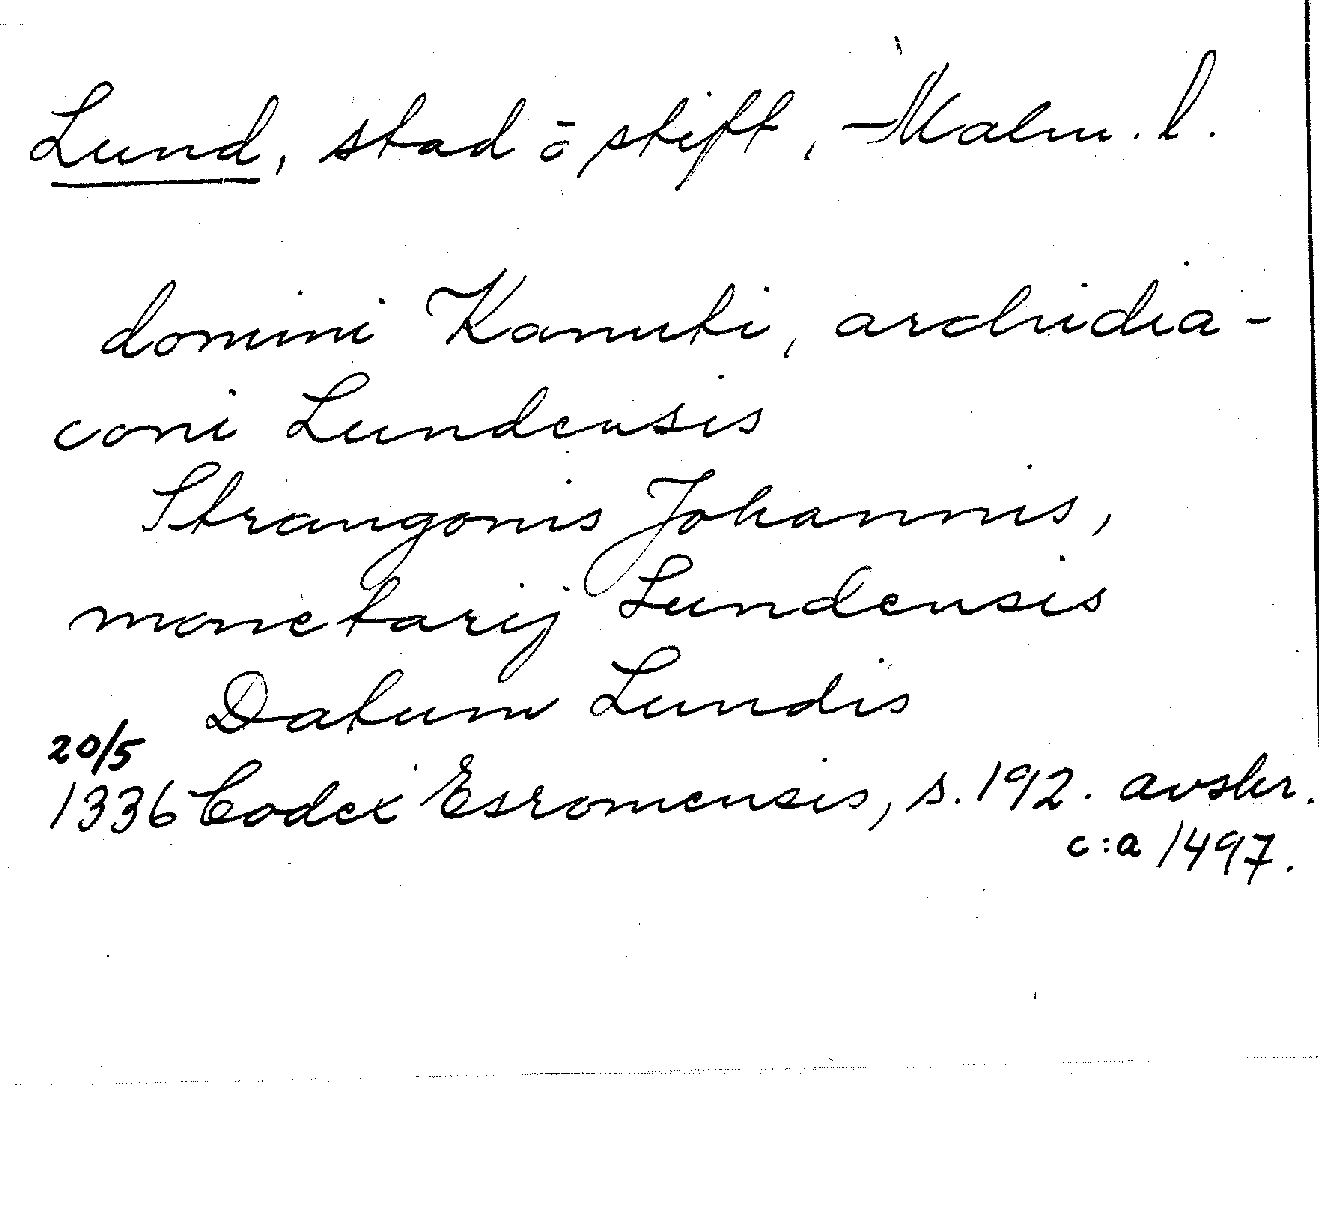 Lund, stad ō stift, Malm. l.
domini Kanuti, archidia-
coni Lundensis
Strangonis Johannis,
monetarij Lundensis
Datum Lundis
20/5
1336 Codex Esromensis, s. 192. avskr.
c:a 1497.